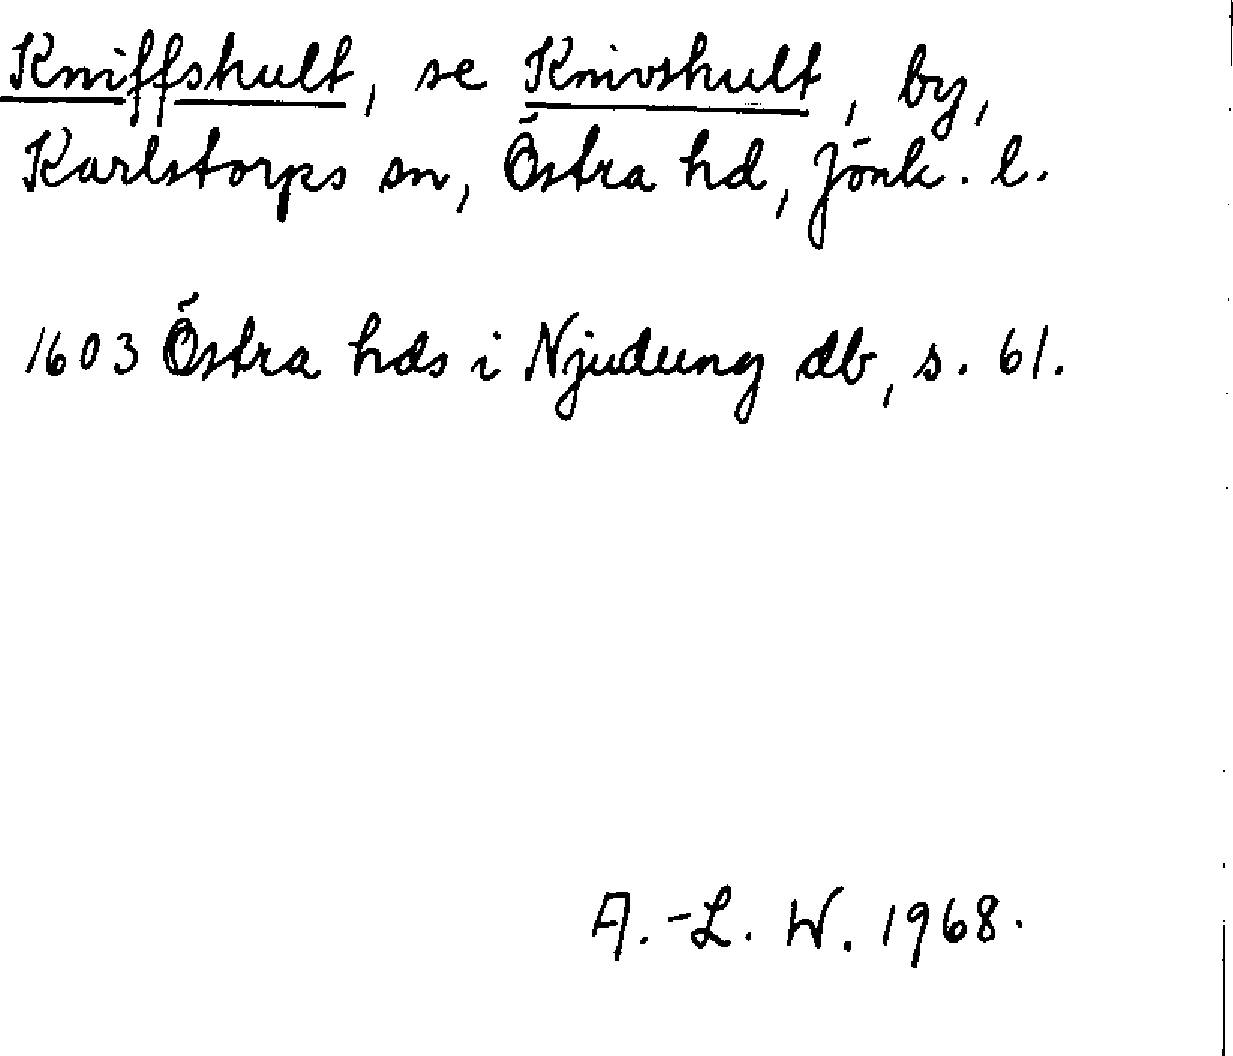 Kniffshult, se Knivshult, by,
Karlstorps sn, Östra hd, Jönk. l.
1603 Östra hds i Njudung db, s. 61.
A.-L. W. 1968.